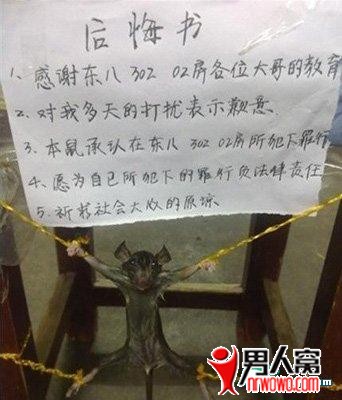 后悔书
1、感谢东八302 02房各位大哥的教育
2、对我多天的打扰表示歉意.
3、本鼠承认在东八302 02房所犯下罪行
4、愿为自己所犯下的罪行负法律责任
5、祈求社会大众的原谅.
男人窝
nrwowo.com